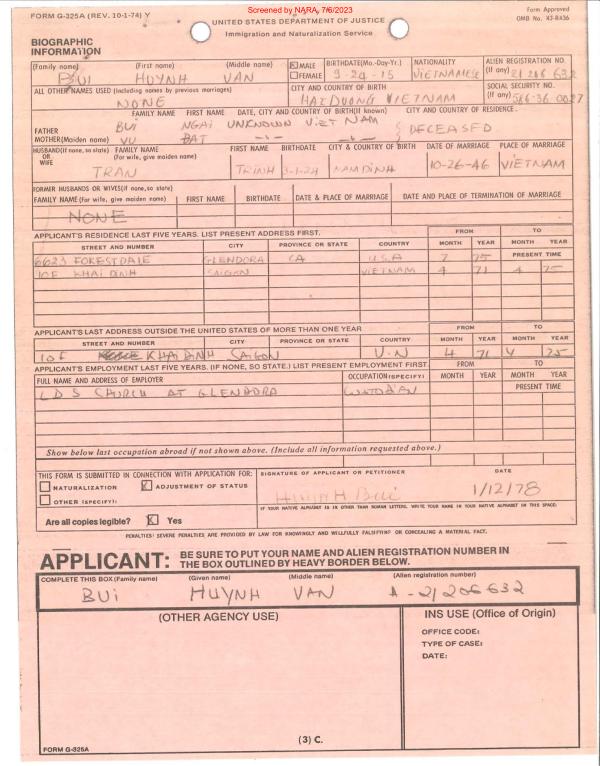 Screened by NARA, 7/6/2023
FORM G-325A (REV. 10-1-74) Y
Form Approved
OMB No. 43-RA36
UNITED STATES DEPARTMENT OF JUSTICE
Immigration and Naturalization Service
BIOGRAPHIC
INFORMATION
(Family name) (First name) (Middle name) MALE FEMALE BIRTHDATE(Mo.-Day-Yr.) NATIONALITY ALIEN REGISTRATION NO. (If any)
BUI HUYNH VAN X 9-24-15 VIETNAMESE 21 206 632
ALL OTHER NAMES USED (Including names by previous marriages) CITY AND COUNTRY OF BIRTH SOCIAL SECURITY NO. (If any)
NONE HAI DUONG VIETNAM 586-36-0027
FAMILY NAME FIRST NAME DATE, CITY AND COUNTRY OF BIRTH(If known) CITY AND COUNTRY OF RESIDENCE.
FATHER BUI NGAI UNKNOWN VIET NAM DECEASED
MOTHER(Maiden name) VU BAT -"- -"-
HUSBAND(If none, so state) OR WIFE FAMILY NAME (For wife, give maiden name) FIRST NAME BIRTHDATE CITY & COUNTRY OF BIRTH DATE OF MARRIAGE PLACE OF MARRIAGE
TRAN TRINH 3-1-24 NAMDINH 10-26-46 VIETNAM
FORMER HUSBANDS OR WIVES(if none,so state)
FAMILY NAME(For wife, give maiden name) FIRST NAME BIRTHDATE DATE & PLACE OF MARRIAGE DATE AND PLACE OF TERMINATION OF MARRIAGE
NONE
APPLICANT'S RESIDENCE LAST FIVE YEARS. LIST PRESENT ADDRESS FIRST. FROM TO
STREET AND NUMBER CITY PROVINCE OR STATE COUNTRY MONTH YEAR MONTH YEAR
6623 FORESTDALE GLENDORA CA U.S.A 7 75 PRESENT TIME
10F KHAI DINH SAIGON VIETNAM 4 71 4 75
APPLICANT'S LAST ADDRESS OUTSIDE THE UNITED STATES OF MORE THAN ONE YEAR FROM TO
STREET AND NUMBER CITY PROVINCE OR STATE COUNTRY MONTH YEAR MONTH YEAR
10F KHAI DINH SAIGON V.N 4 71 4 75
APPLICANT'S EMPLOYMENT LAST FIVE YEARS. (IF NONE, SO STATE.) LIST PRESENT EMPLOYMENT FIRST FROM TO
FULL NAME AND ADDRESS OF EMPLOYER OCCUPATION(SPECIFY) MONTH YEAR MONTH YEAR
LDS CHURCH AT GLENDORA CUSTODIAN PRESENT TIME
Show below last occupation abroad if not shown above. (Include all information requested above.)
THIS FORM IS SUBMITTED IN CONNECTION WITH APPLICATION FOR: SIGNATURE OF APPLICANT OR PETITIONER DATE
NATURALIZATION X ADJUSTMENT OF STATUS
OTHER (SPECIFY):
HUYNH BUI 1/12/78
IF YOUR NATIVE ALPHABET IS IN OTHER THAN ROMAN LETTERS, WRITE YOUR NAME IN YOUR NATIVE ALPHABET IN THIS SPACE:
Are all copies legible? X Yes
PENALTIES: SEVERE PENALTIES ARE PROVIDED BY LAW FOR KNOWINGLY AND WILLFULLY FALSIFYING OR CONCEALING A MATERIAL FACT.
APPLICANT: BE SURE TO PUT YOUR NAME AND ALIEN REGISTRATION NUMBER IN
THE BOX OUTLINED BY HEAVY BORDER BELOW.
COMPLETE THIS BOX (Family name) (Given name) (Middle name) (Alien registration number)
BUI HUYNH VAN A-21206632
(OTHER AGENCY USE) INS USE (Office of Origin)
OFFICE CODE:
TYPE OF CASE:
DATE:
(3) C.
FORM G-325A